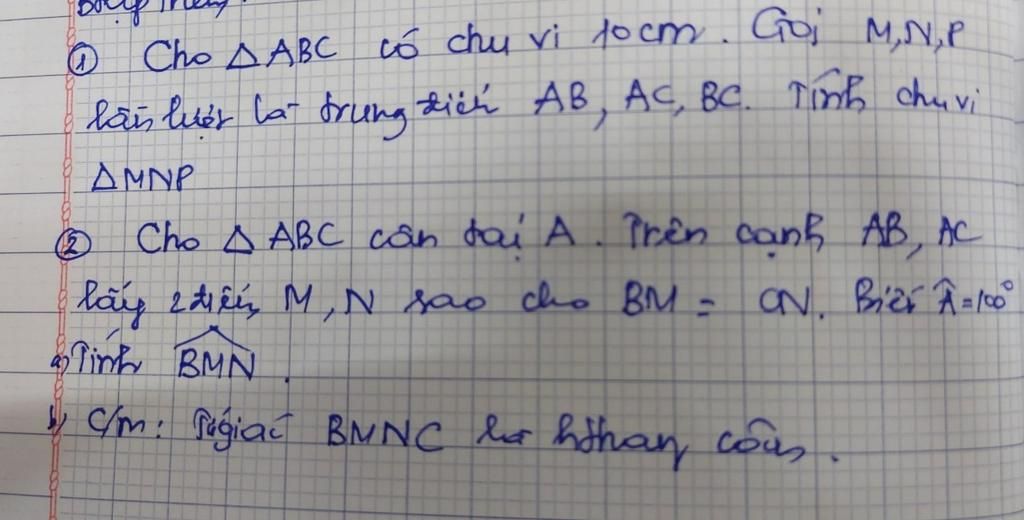 ① Cho △ABC có chu vi 10cm. Gọi M,N,P
lần lượt là trung điểm AB, AC, BC. Tính chu vi
△MNP
② Cho △ABC cân tại A. Trên cạnh AB, AC
lấy 2 điểm M, N sao cho BM = CN. Biết Â=100°
a) Tính \widehat{BMN}.
b) C/m: Tứ giác BMNC là hthang cân.